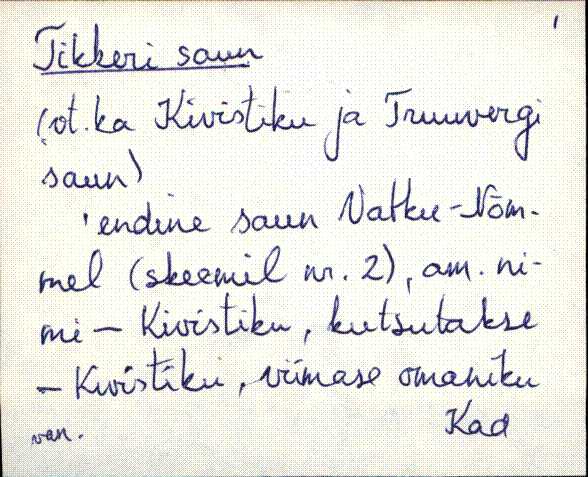 Tikkeri saun
(vt. ka Kivistiku ja Truuvergi
saun)
'endine saun Vatku-Nõm-
mel (skeemil nr. 2), am. ni-
mi – Kivistiku, kutsutakse
– Kivistiku, viimase omaniku
van. Kad